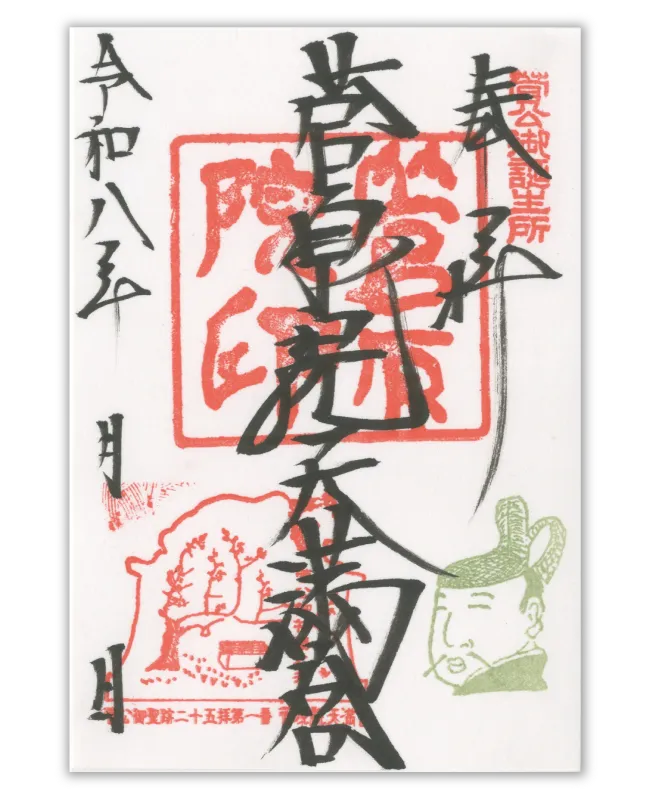 菅公御誕生所
奉拝
菅原院天満宮
菅原院印
令和八年 月 日
公御聖跡二十五拝第一番 天満